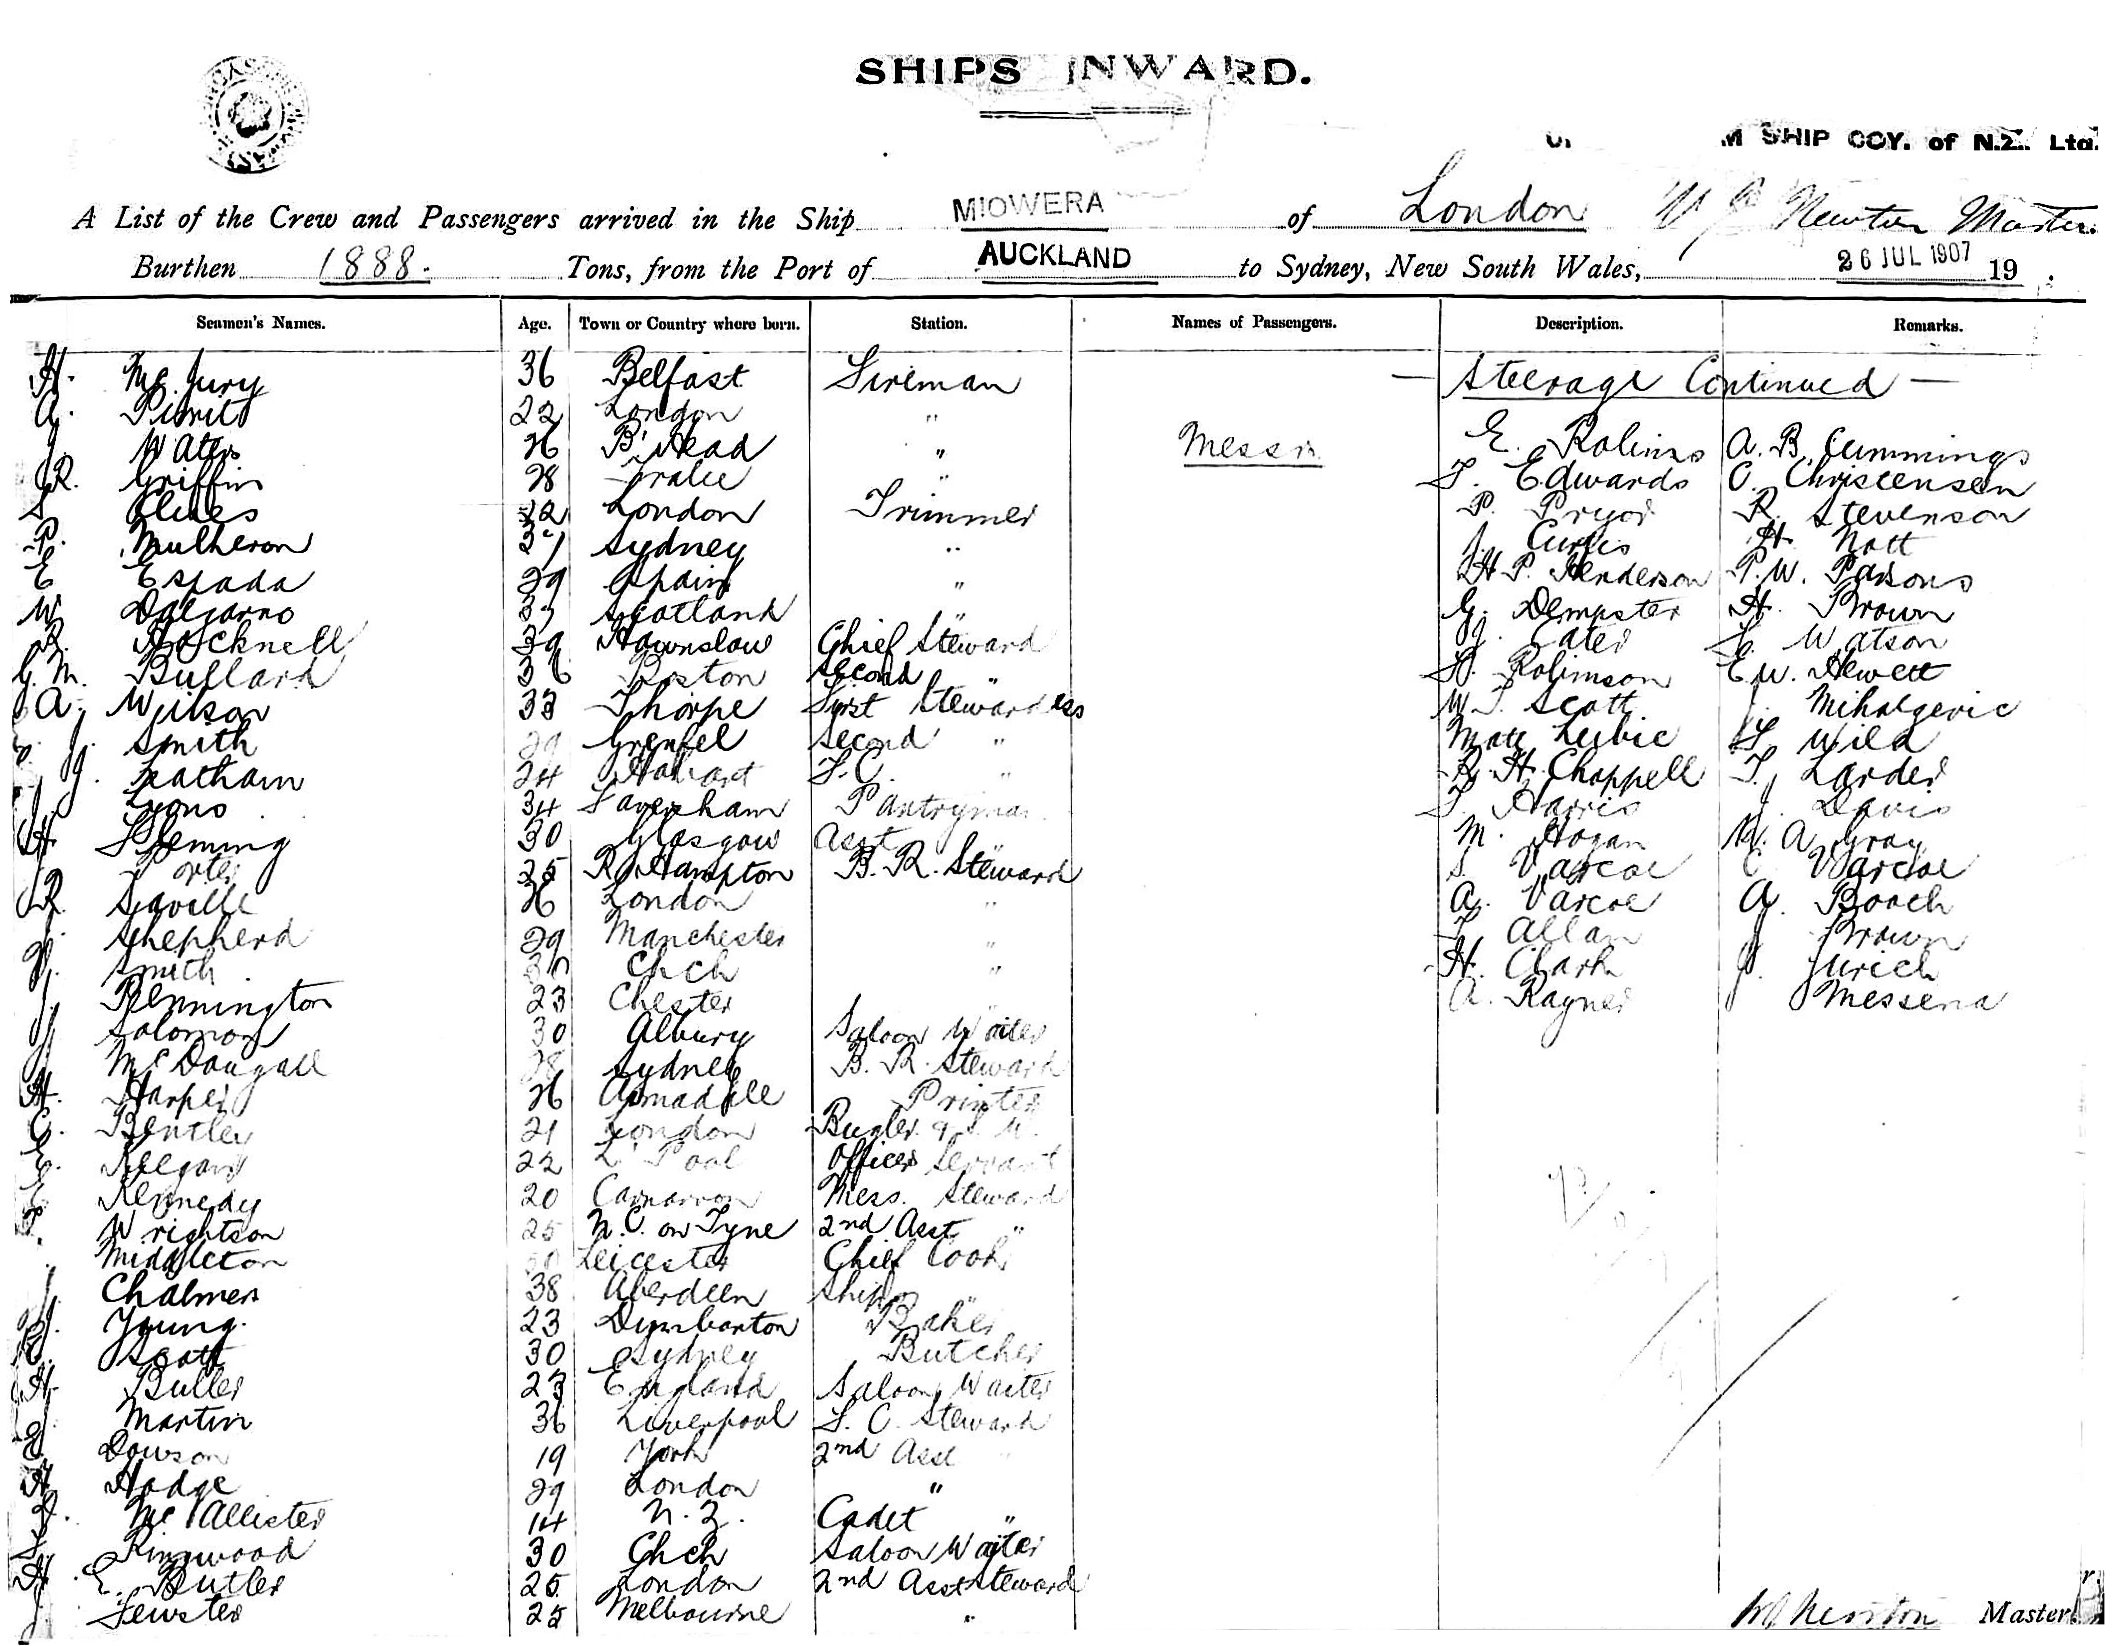 SHIPS INWARD.
M SHIP COY. of N.Z. Ltd.
A List of the Crew and Passengers arrived in the Ship MIOWERA of London Newton Master.
Burthen 1888. Tons, from the Port of AUCKLAND to Sydney, New South Wales, 26 JUL 1907 19
Seamen's Names. Age. Town or Country where born. Station. Names of Passengers. Description. Remarks.
H. McJury 36 Belfast Fireman — Steerage Continued —
A. 22 London "
J Waters 26 B'Head " Messrs E. Robins A. B. Cummings
R. Griffin 28 Tralee " T. Edwards C. Christensen
S Clines 22 London Trimmer P. Pryor R. Stevenson
P. Mulheron 37 Sydney " J. Curtis H. Nott
E Espada 29 Spain " H P. Henderson P. W. Parsons
W Dalgarno 37 Scotland " G. Dempster H. Brown
R. Hocknell 39 Hownslow Chief Steward J. Cater S. Watson
G. M. Bullard 36 Boston Second " S. Robinson E W. Hewett
A. Wilson 33 Thorpe First Stewardess W T. Scott J.
J. Smith 29 Grenfel Second " Matt Lubic T. Wild
J. Leatham 24 Hobart S. C. " R. H. Chappell T. Larder
Lyons 34 Faversham Pantryman T Harris J. Davis
H. Fleming 30 Glasgow Asst " M. Hogan W. A. Gray
Porter 25 R. Hampton B. R. Steward S. Varcoe C Varcoe
R. Saville 26 London " A. Varcoe A. Booch
J. Shepherd 29 Manchester " T Allan J Brown
J. Smith Chch " H. Clark J. Jurich
J Pennington 23 Chester " A. Rayner J Messena
J Solomon 30 Albury Saloon Waiter
J McDougall 28 Sydney B. R. Steward
H. Harper 26 Armadale Printer
C. Bentley 21 London Bugler & S. W.
E. Keegan 22 L'Pool Officers Servant
E Kennedy 20 Carnarvon Mess. Steward
T. Wrightson 25 N. C. on Tyne 2nd Asst "
Middleton Leicester Chief Cook
J. Chalmers 38 Aberdeen Ships "
J. Young. 23 Dumbarton Baker
R. Scott 30 Sydney Butcher
H. Butler 23 England Saloon Waiter
J. Martin 36 Liverpool S. C. Steward
E. Dowson 19 York 2nd Asst "
H Hodge 29 London "
D. McAllister 14 N. Z. Cadet "
S Ringwood 30 Chch Saloon Waiter
H E. Butler 25 London 2nd Asst Steward
J Fewster 25 Melbourne "
Newton Master